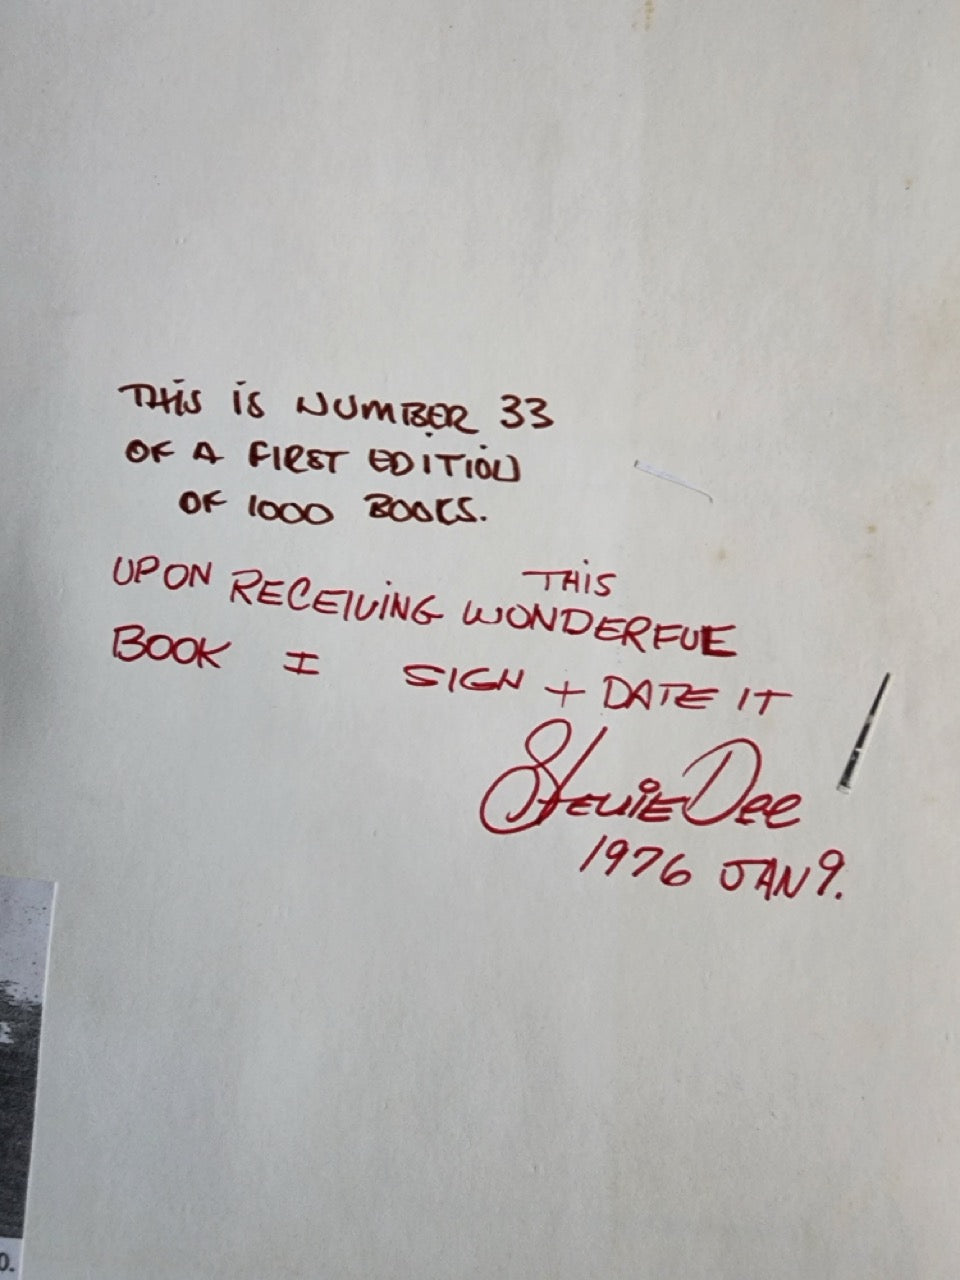 THIS IS NUMBER 33
OF A FIRST EDITION
OF 1000 BOOKS.
THIS
UPON RECEIVING WONDERFUL
BOOK I SIGN + DATE IT
Stevie Dee
1976 JAN 9.
0.